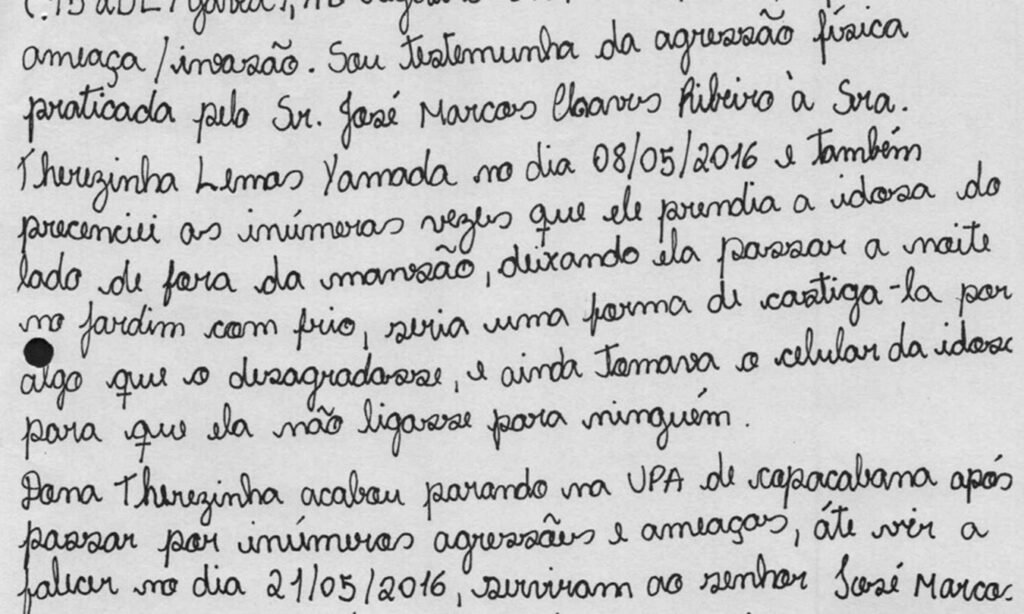 ameaça/invasão. Sou testemunha da agressão física
praticada pelo Sr. José Marcos Chaves Ribeiro à Sra.
Therezinha Lemos Yamada no dia 08/05/2016 e também
precenciei as inúmeras vezes que ele prendia a idosa do
lado de fora da mansão, deixando ela passar a noite
no jardim com frio, seria uma forma de castiga-la por
algo que o desagradasse, e ainda tomava o celular da idosa
para que ela não ligasse para ninguém.
Dona Therezinha acabou parando na UPA de copacabana após
passar por inúmeras agressões e ameaças, áte vir a
falecer no dia 21/05/2016, serviram ao senhor José Marcos